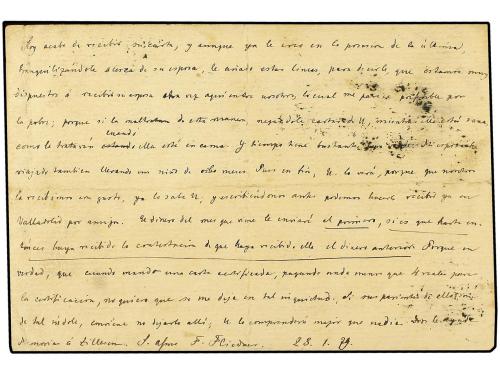 Hoy acabo de recibir su carta, y aunque ya le creo en la posesion de la última,
tranquilizándole acerca de su esposa, le añado estas lineas, para decirle, que estamos muy
dispuestos á recibir su esposa otra vez aquí entre nosotros, lo cual me parece preferible por
la pobre; porque si la maltratan de esta manera, negándole cartas de U, mientras ella está sana
como le tratarán cuando ella esté en cama. Y tiempo tiene bastante
viajado tambien llevando un niño de ocho meses. Pues en fin, U. lo verá, porque que nosotros
la recibimos con gusto, ya lo sabe U, y escribiéndonos antes podemos hacerla recibir ya en
Valladolid por amigos. El dinero del mes que viene le enviaré el primero, si es que hasta en-
tonces haya recibido la contestación de que haya recibido ella el dinero anterior. Porque en
verdad, que cuando mando una carta certificada, pagando nada menos que 4 reales para
la certificación, no quiero que se me deja en tal inquietud. Si sus parientes de ella son
de tal indole, conviene no dejarla allí; U. lo comprenderá mejor que nadie. Dios le ayude
S. afmo F. Fliedner. 23. 1. 79.